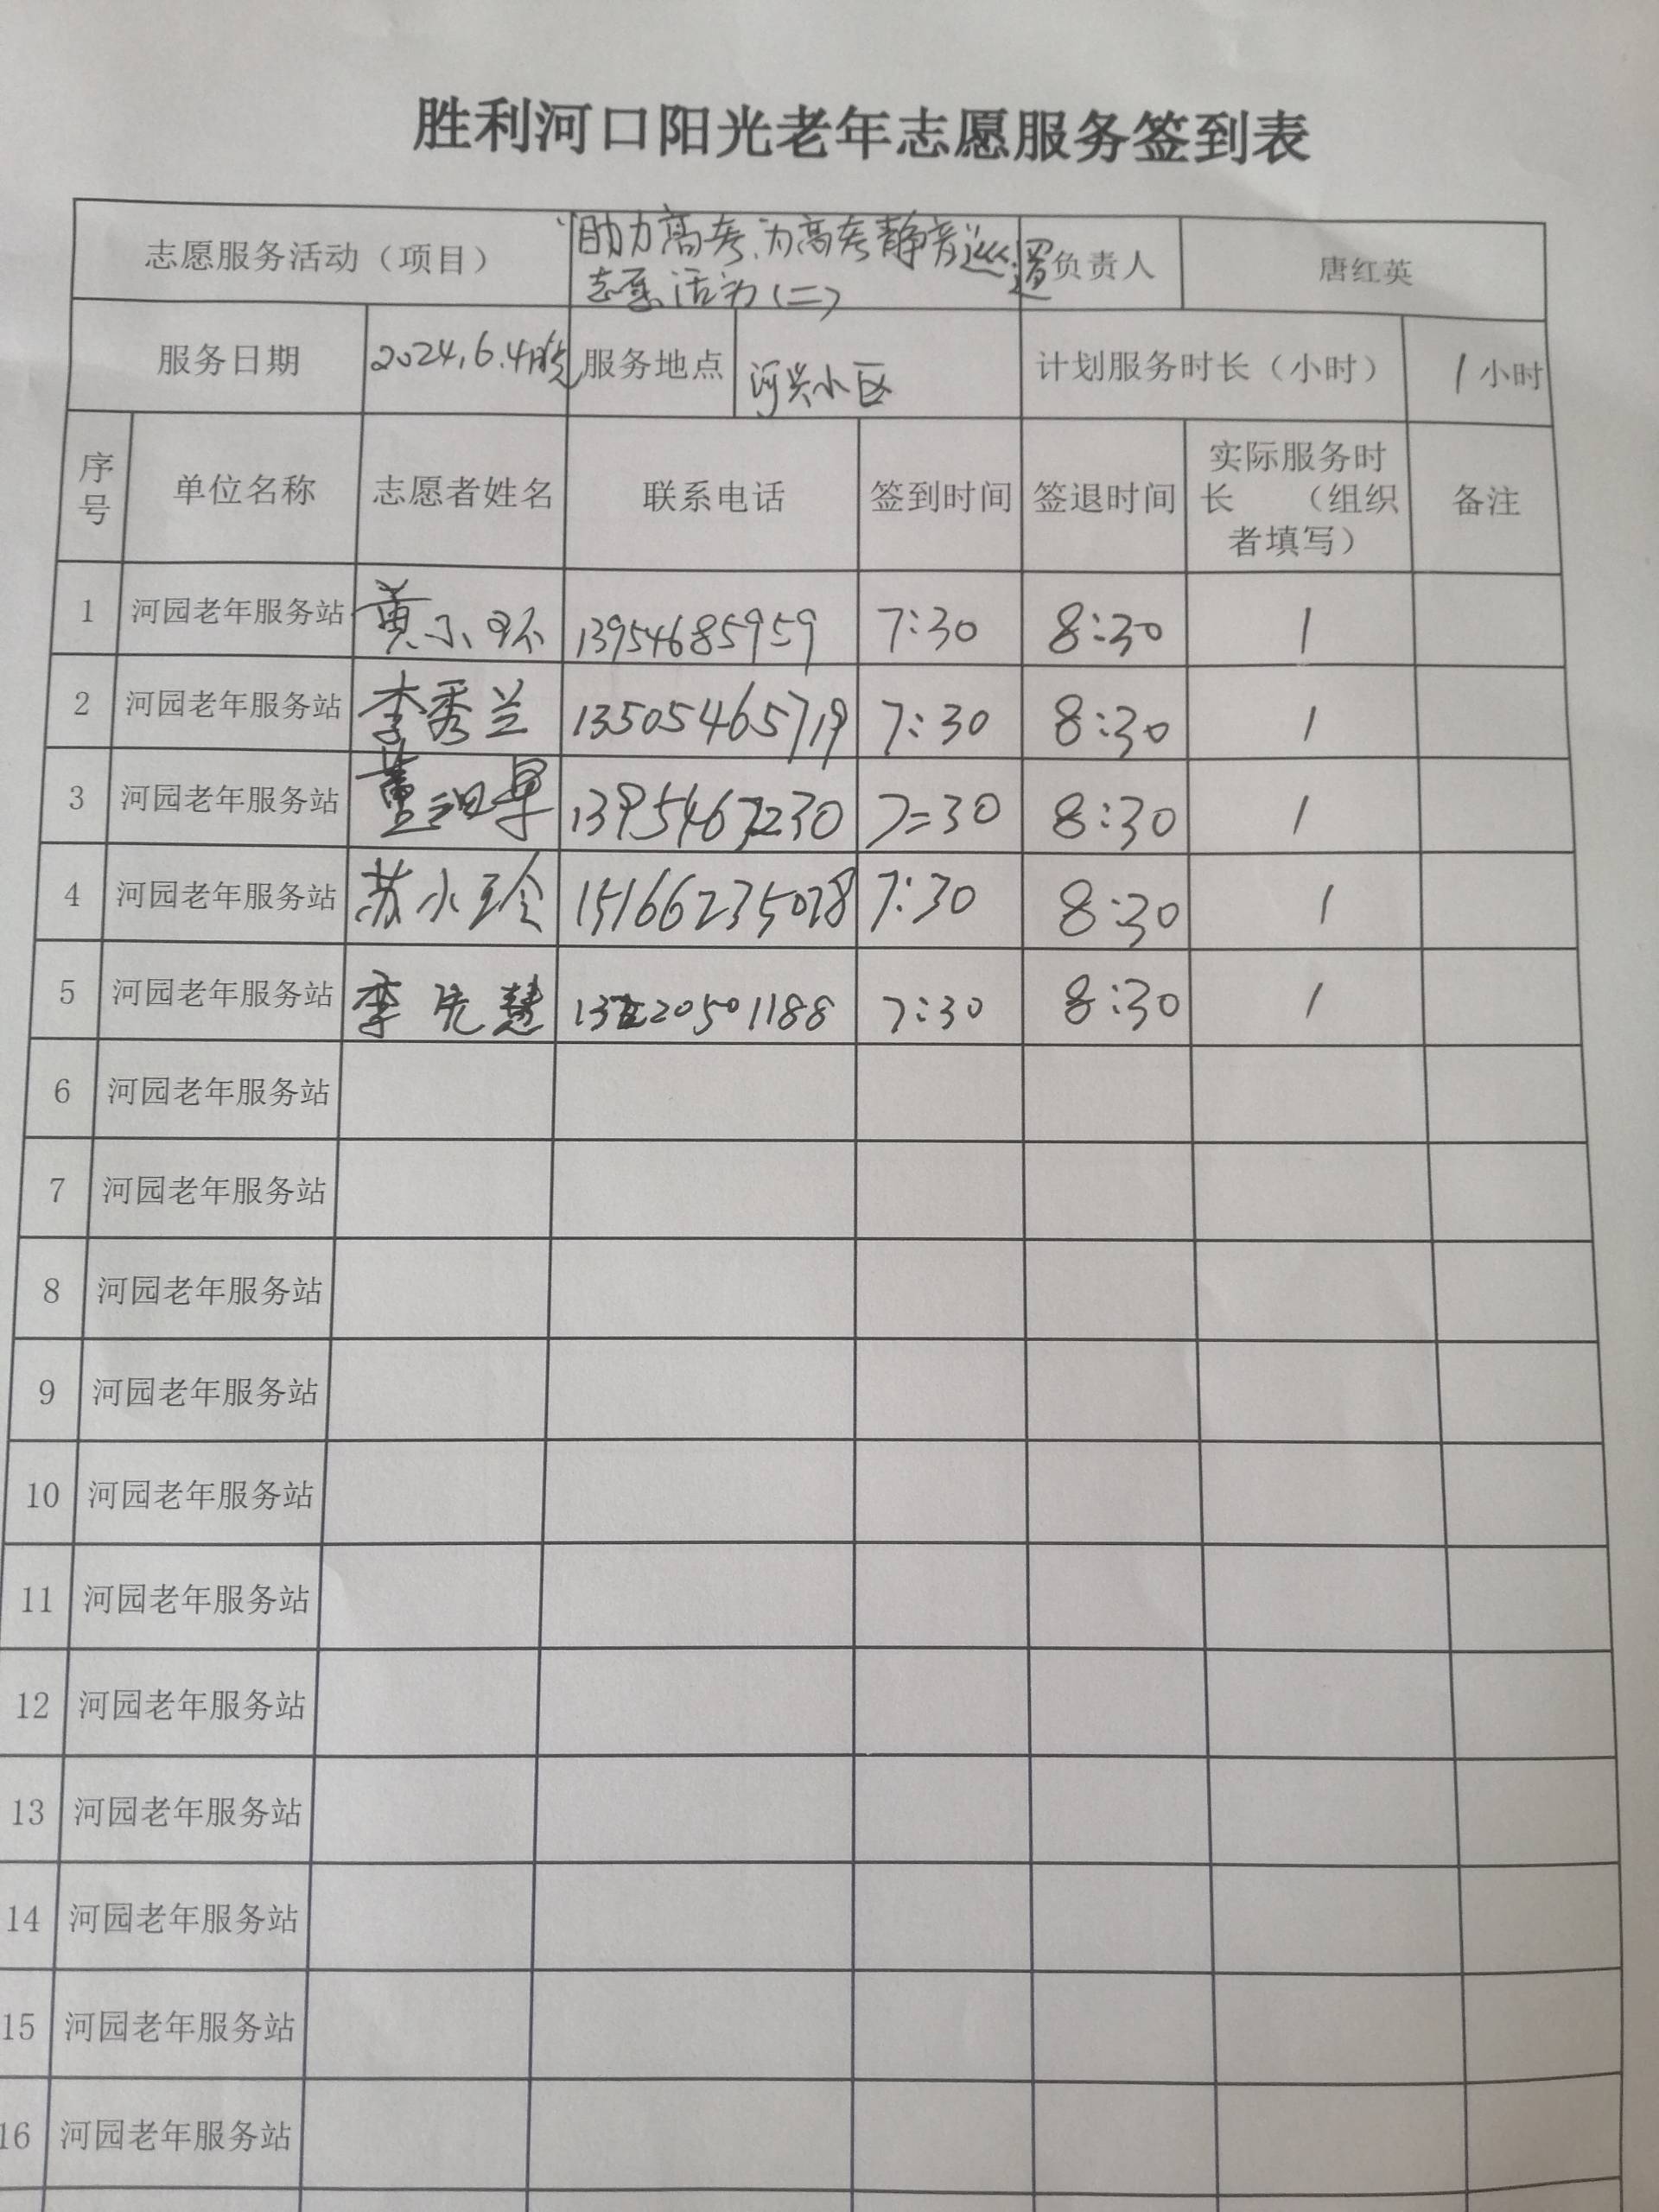 胜利河口阳光老年志愿服务签到表
志愿服务活动（项目） “助力高考、为高考静音”巡逻 负责人 唐红英
志愿活动（二）
服务日期 2024.6.4晚 服务地点 河兴小区 计划服务时长（小时） 1小时
序号 单位名称 志愿者姓名 联系电话 签到时间 签退时间 实际服务时长 （组织者填写） 备注
1 河园老年服务站 黄小环 13954685959 7:30 8:30 1
2 河园老年服务站 李秀兰 13505465719 7:30 8:30 1
3 河园老年服务站 7:30 8:30 1
4 河园老年服务站 苏小玲 15166235028 7:30 8:30 1
5 河园老年服务站 李先慧 7:30 8:30 1
6 河园老年服务站
7 河园老年服务站
8 河园老年服务站
9 河园老年服务站
10 河园老年服务站
11 河园老年服务站
12 河园老年服务站
13 河园老年服务站
14 河园老年服务站
15 河园老年服务站
16 河园老年服务站